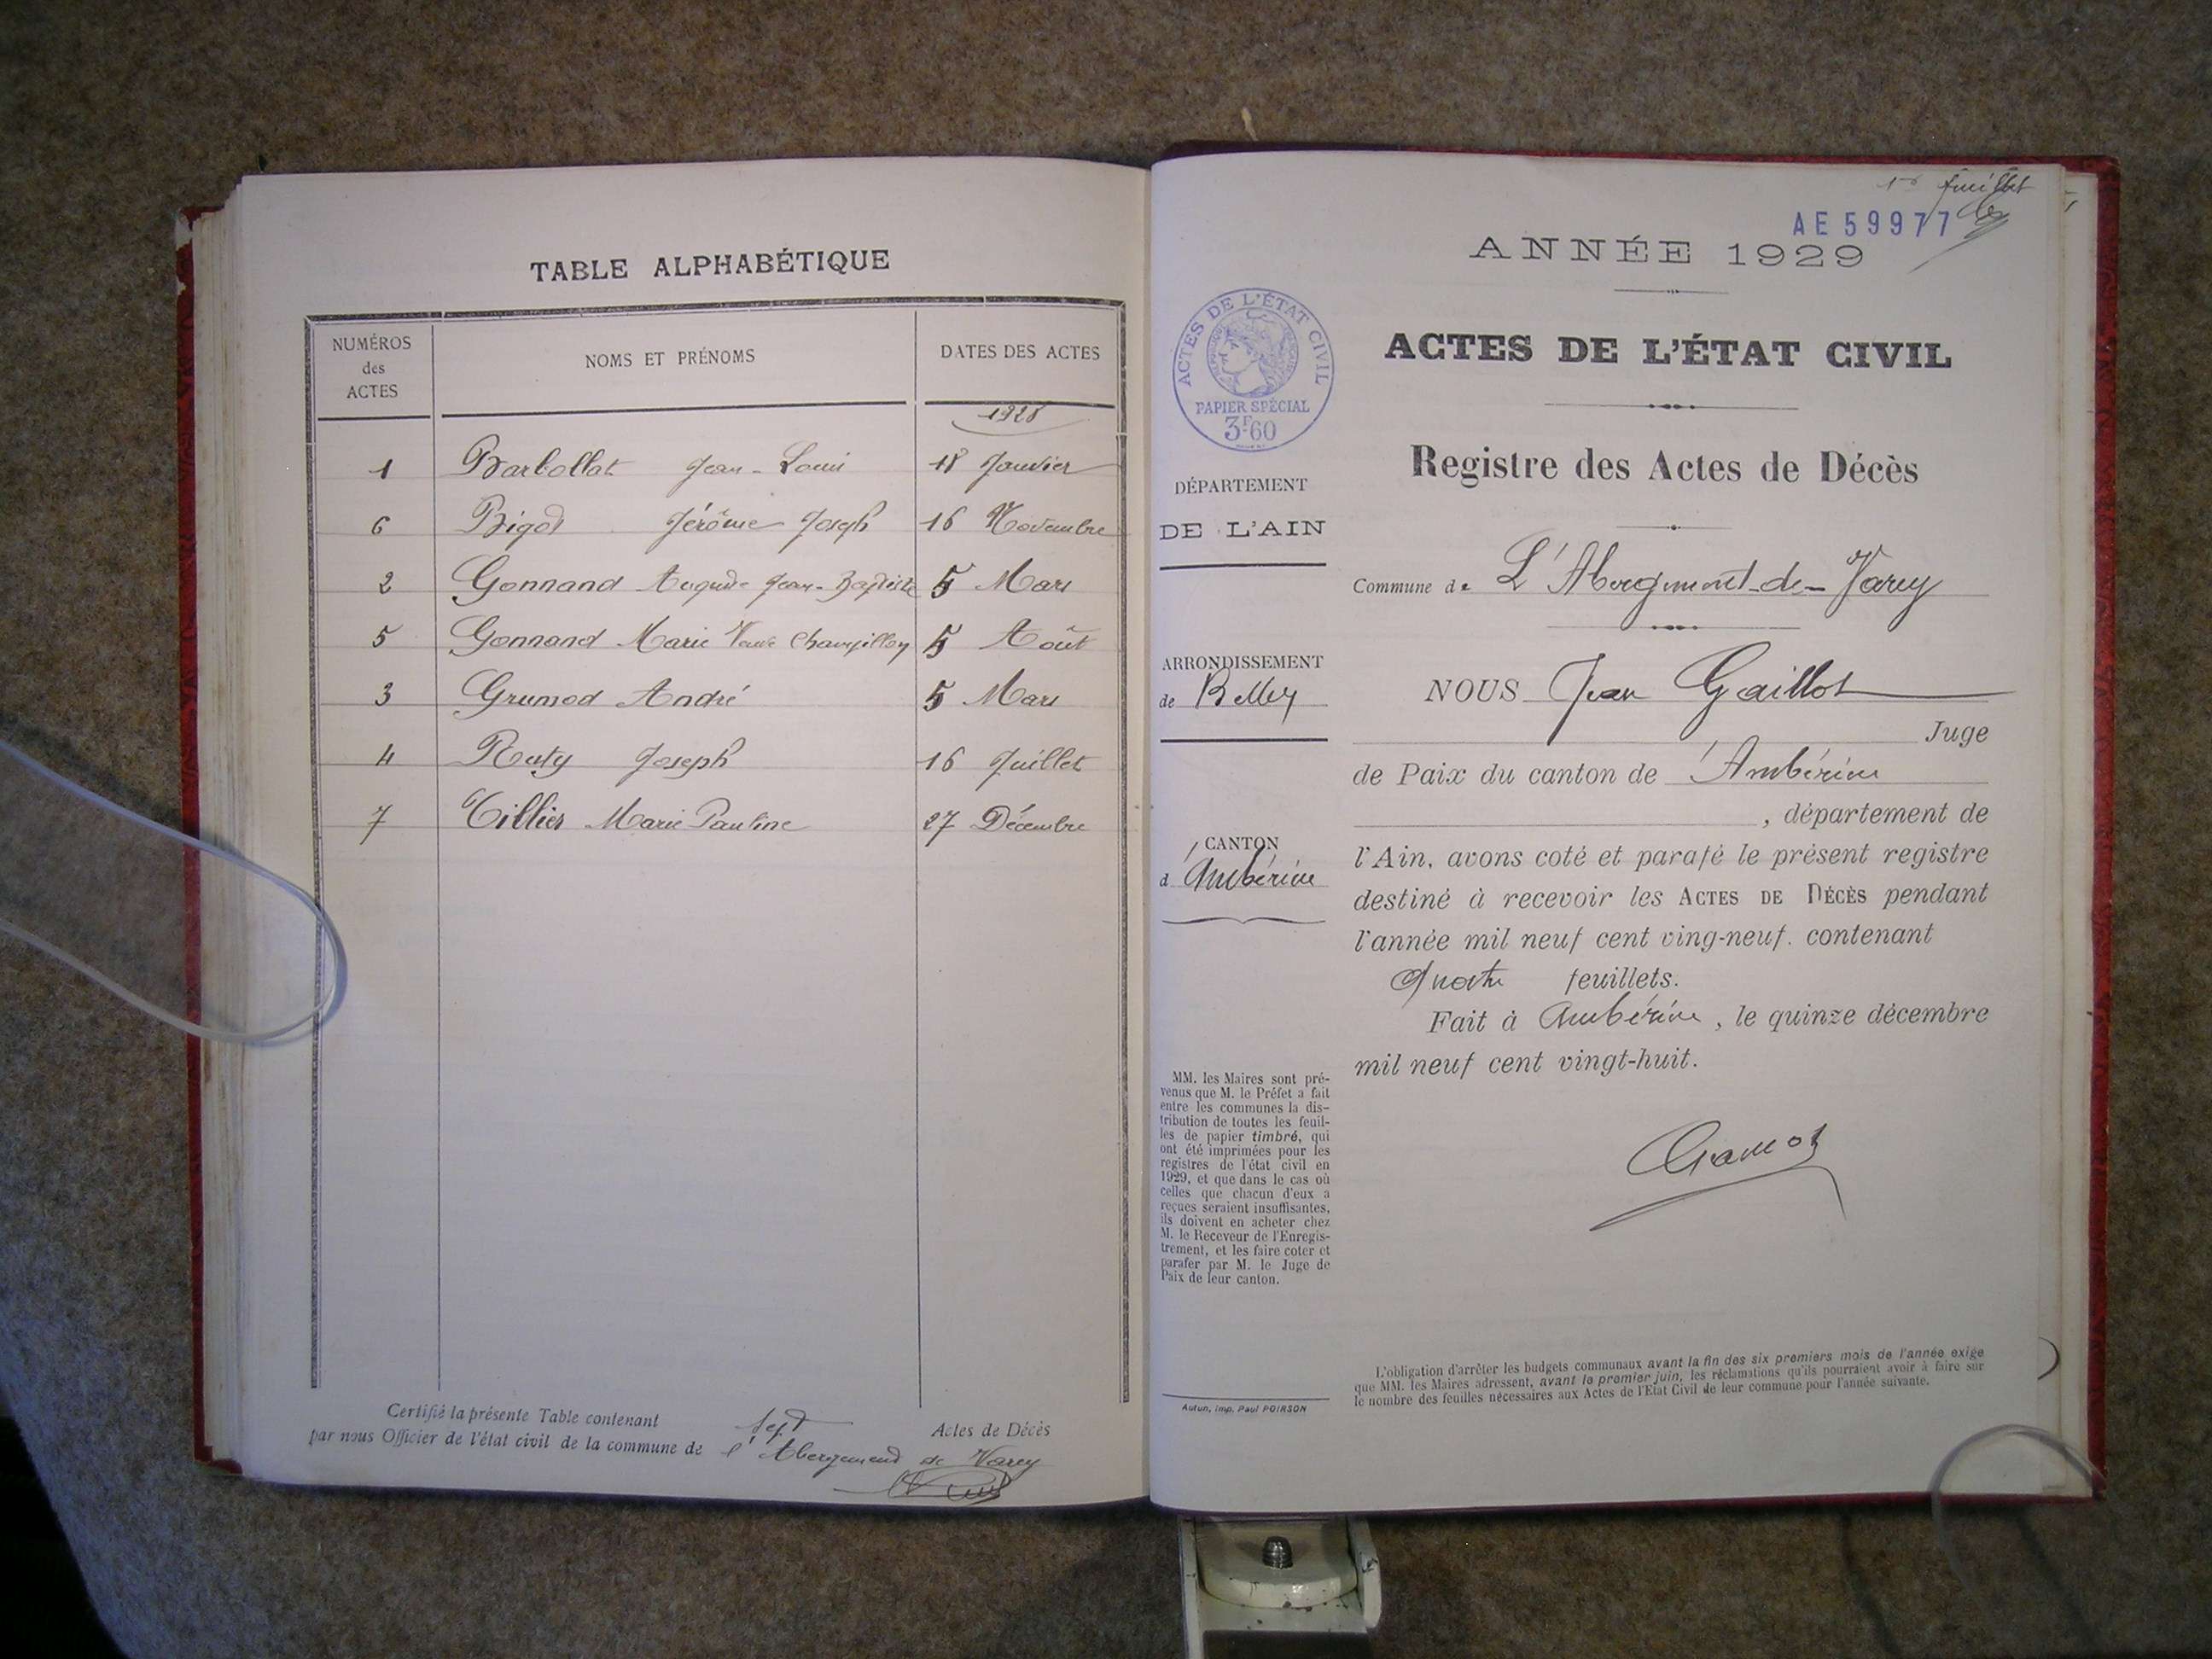 TABLE ALPHABÉTIQUE
NUMÉROS des ACTES
NOMS ET PRÉNOMS
DATES DES ACTES
1928
1 Barbollat Jean-Louis 18 Janvier
6 Bigot Jérôme Joseph 16 Novembre
2 Gonnand Auguste Jean-Baptiste 5 Mars
5 Gonnand Marie Veuve 5 Août
3 Grumod André 5 Mars
4 Ruty Joseph 16 Juillet
7 Tillier Marie Pauline 27 Décembre
Certifié la présente Table contenant sept Actes de Décès
par nous Officier de l'état civil de la commune de l'Abergement de Varey
1er feuillet
AE 59977
ANNÉE 1929
ACTES DE L'ÉTAT CIVIL
PAPIER SPÉCIAL
3F60
ACTES DE L'ÉTAT CIVIL
Registre des Actes de Décès
DÉPARTEMENT
DE L'AIN
Commune de L'Abergement-de-Varey
ARRONDISSEMENT
de Belley
CANTON
d'Ambérieu
NOUS Jean Gaillot
Juge
de Paix du canton de Ambérieu
, département de
l'Ain, avons coté et parafé le présent registre
destiné à recevoir les ACTES DE DÉCÈS pendant
l'année mil neuf cent ving-neuf. contenant
quatre feuillets.
Fait à Ambérieu, le quinze décembre
mil neuf cent vingt-huit.
MM. les Maires sont pré-
venus que M. le Préfet a fait
entre les communes la dis-
tribution de toutes les feuil-
les de papier timbré, qui
ont été imprimées pour les
registres de l'état civil en
1929, et que dans le cas où
celles que chacun d'eux a
reçues seraient insuffisantes,
ils doivent en acheter chez
M. le Receveur de l'Enregis-
trement, et les faire coter et
parafer par M. le Juge de
Paix de leur canton.
Autun, imp. Paul POIRSON
L'obligation d'arrêter les budgets communaux avant la fin des six premiers mois de l'année exige
que MM. les Maires adressent, avant le premier juin, les réclamations qu'ils pourraient avoir à faire sur
le nombre des feuilles nécessaires aux Actes de l'Etat Civil de leur commune pour l'année suivante.